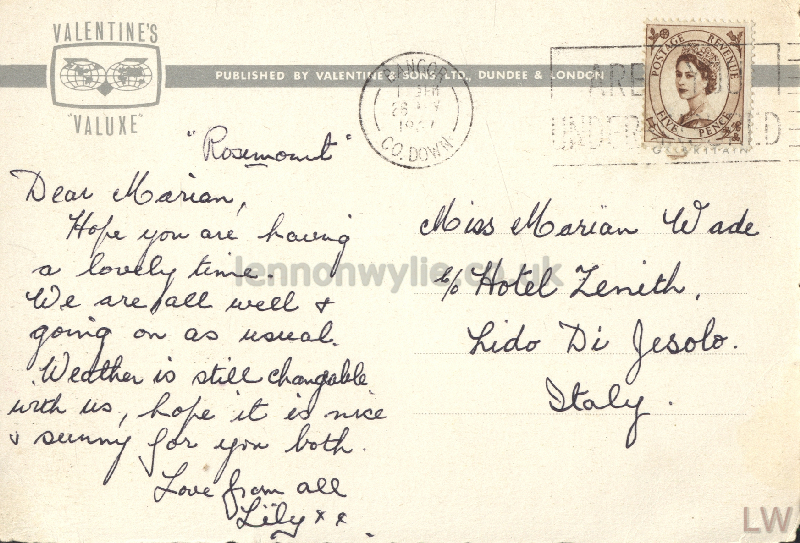 VALENTINE'S
"VALUXE"
PUBLISHED BY VALENTINE & SONS LTD., DUNDEE & LONDON
BANGOR
CO. DOWN
ARE
UNDER
POSTAGE REVENUE
FIVE PENCE
"Rosemount"
Dear Marian,
Hope you are having
a lovely time.
We are all well &
going on as usual.
Weather is still changable
with us, hope it is nice
& sunny for you both.
Love from all
Lily x x
Miss Marian Wade
c/o Hotel Zenith,
Lido Di Jesolo.
Italy.
lennonwylie.co.uk
LW